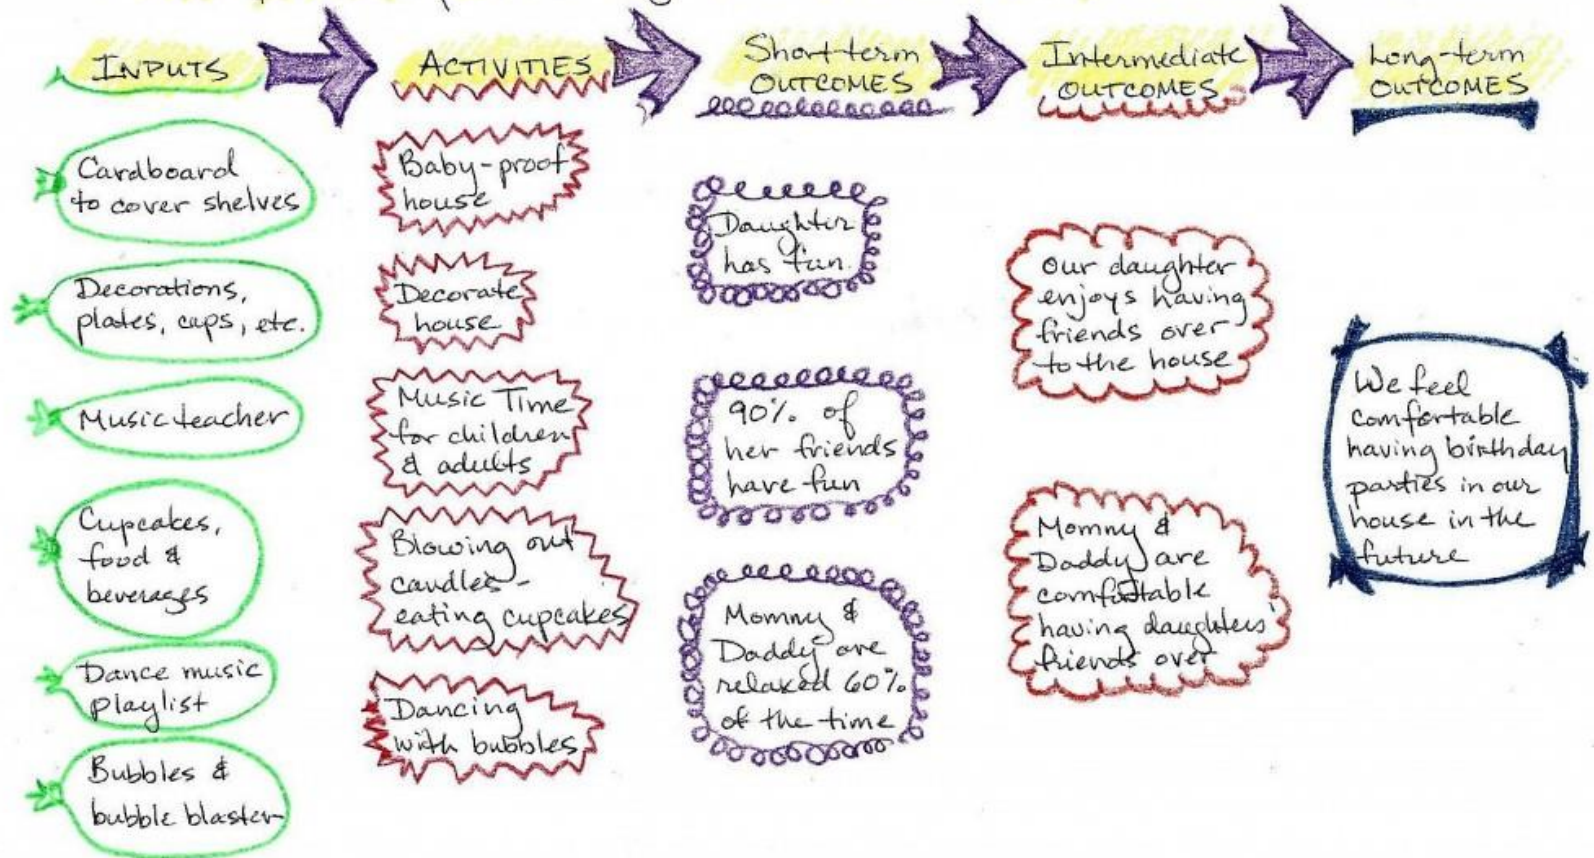 INPUTS
ACTIVITIES
Short-term
OUTCOMES
Intermediate
OUTCOMES
Long-term
OUTCOMES
Cardboard
to cover shelves
Decorations,
plates, caps, etc.
Music teacher
Cupcakes,
food &
beverages
Dance music
playlist
Bubbles &
bubble blaster
Baby-proof
house
Decorate
house
Music Time
for children
& adults
Blowing out
candles -
eating cupcakes
Dancing
with bubbles
Daughter
has fun.
90% of
her friends
have fun
Mommy &
Daddy are
relaxed 60%
of the time
Our daughter
enjoys having
friends over
to the house
Mommy &
Daddy are
comfortable
having daughters'
friends over
We feel
comfortable
having birthday
parties in our
house in the
future